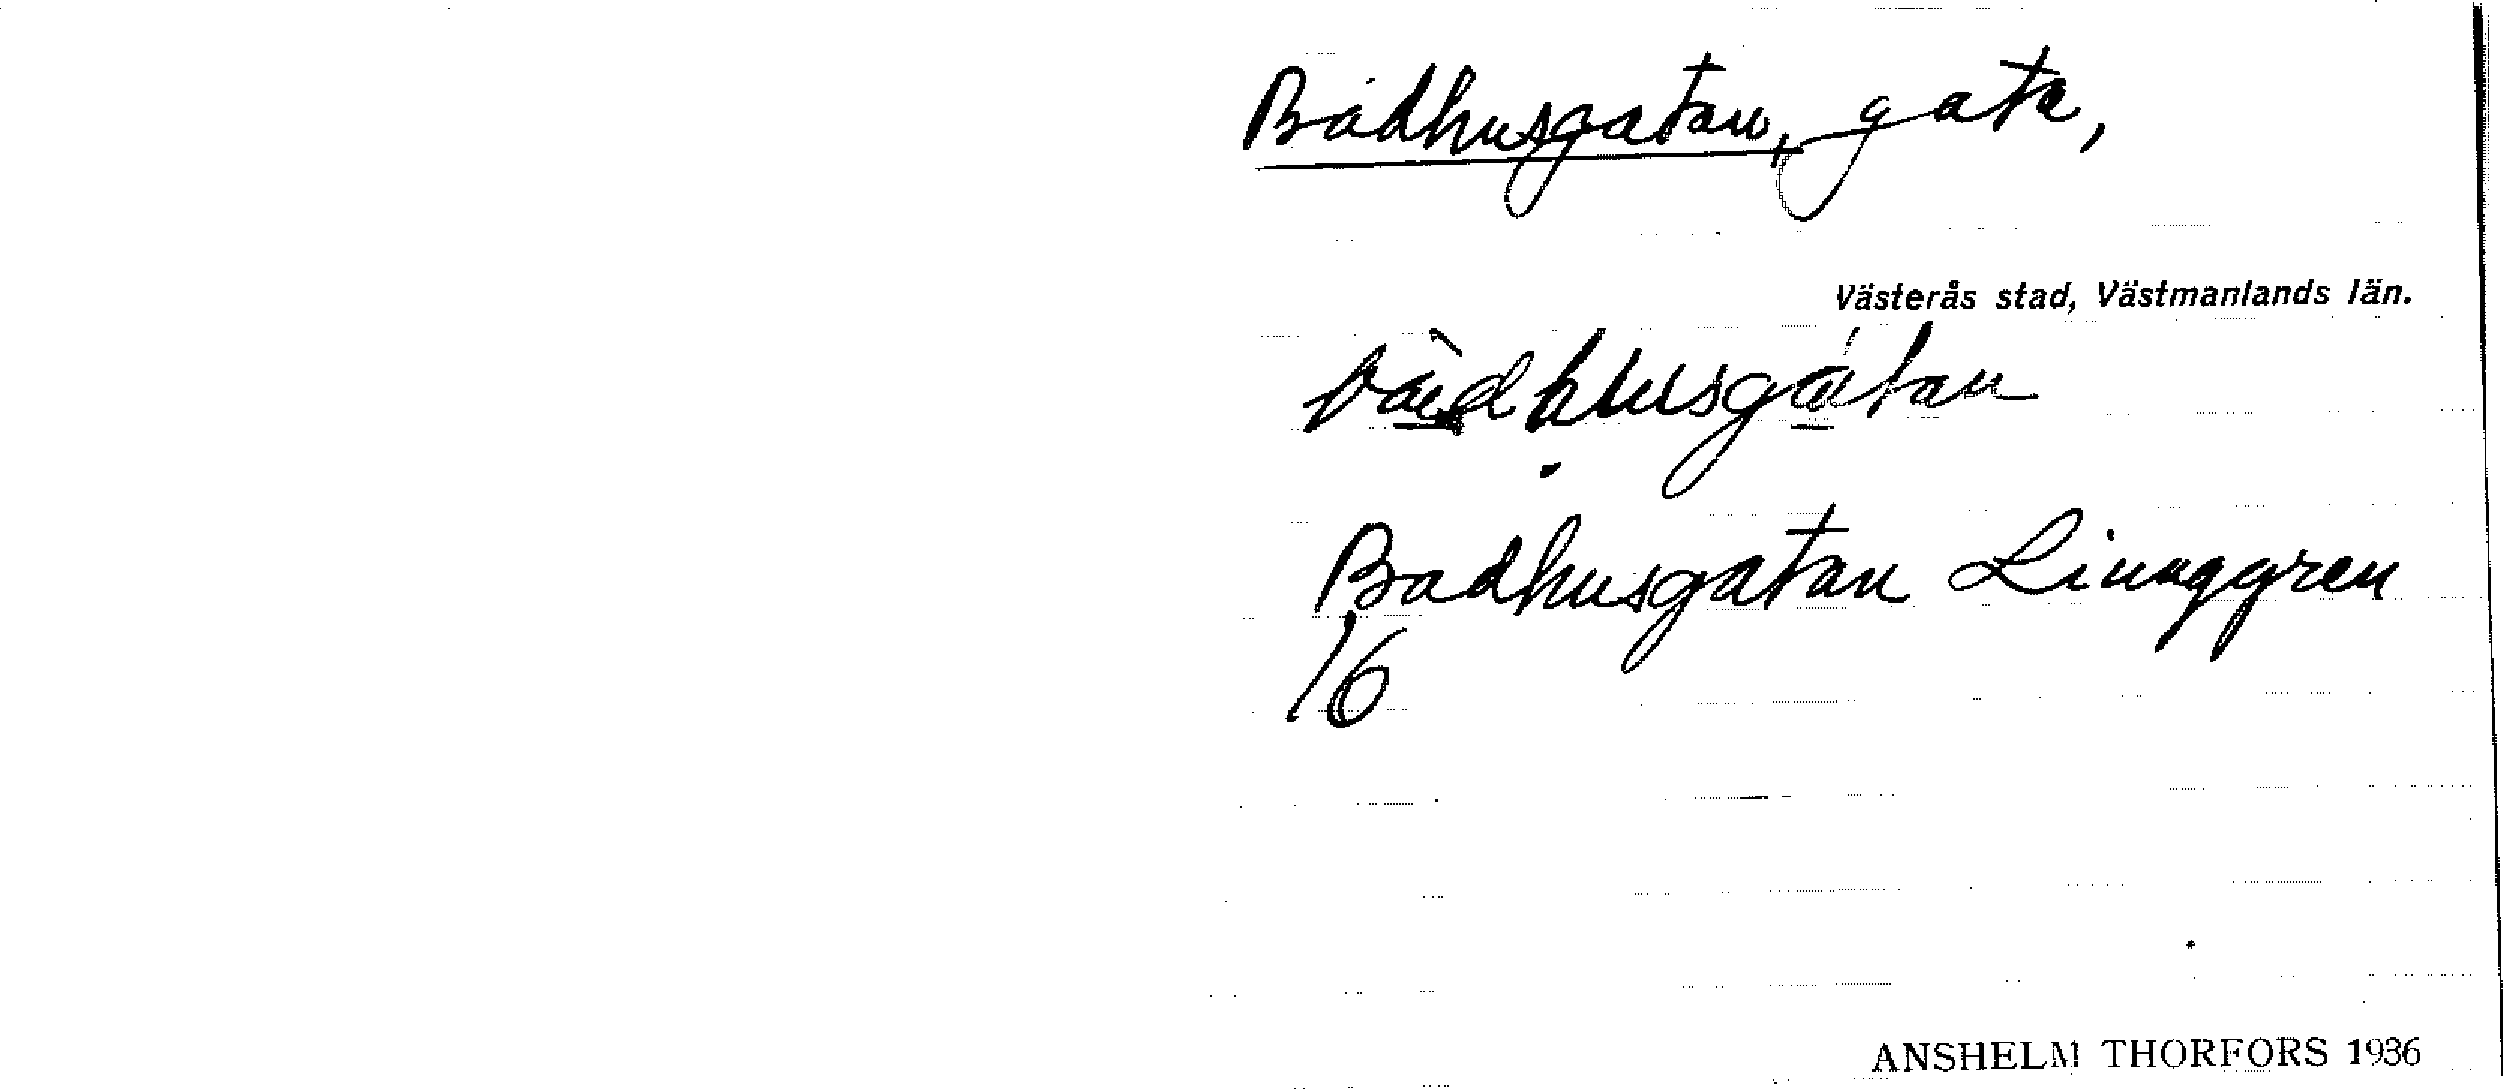 Badhusgatan, gata,
Västerås stad, Västmanlands län.
bàdhusgátan
Badhusgatan Linnggren
16
ANSHELM THORFORS 1936